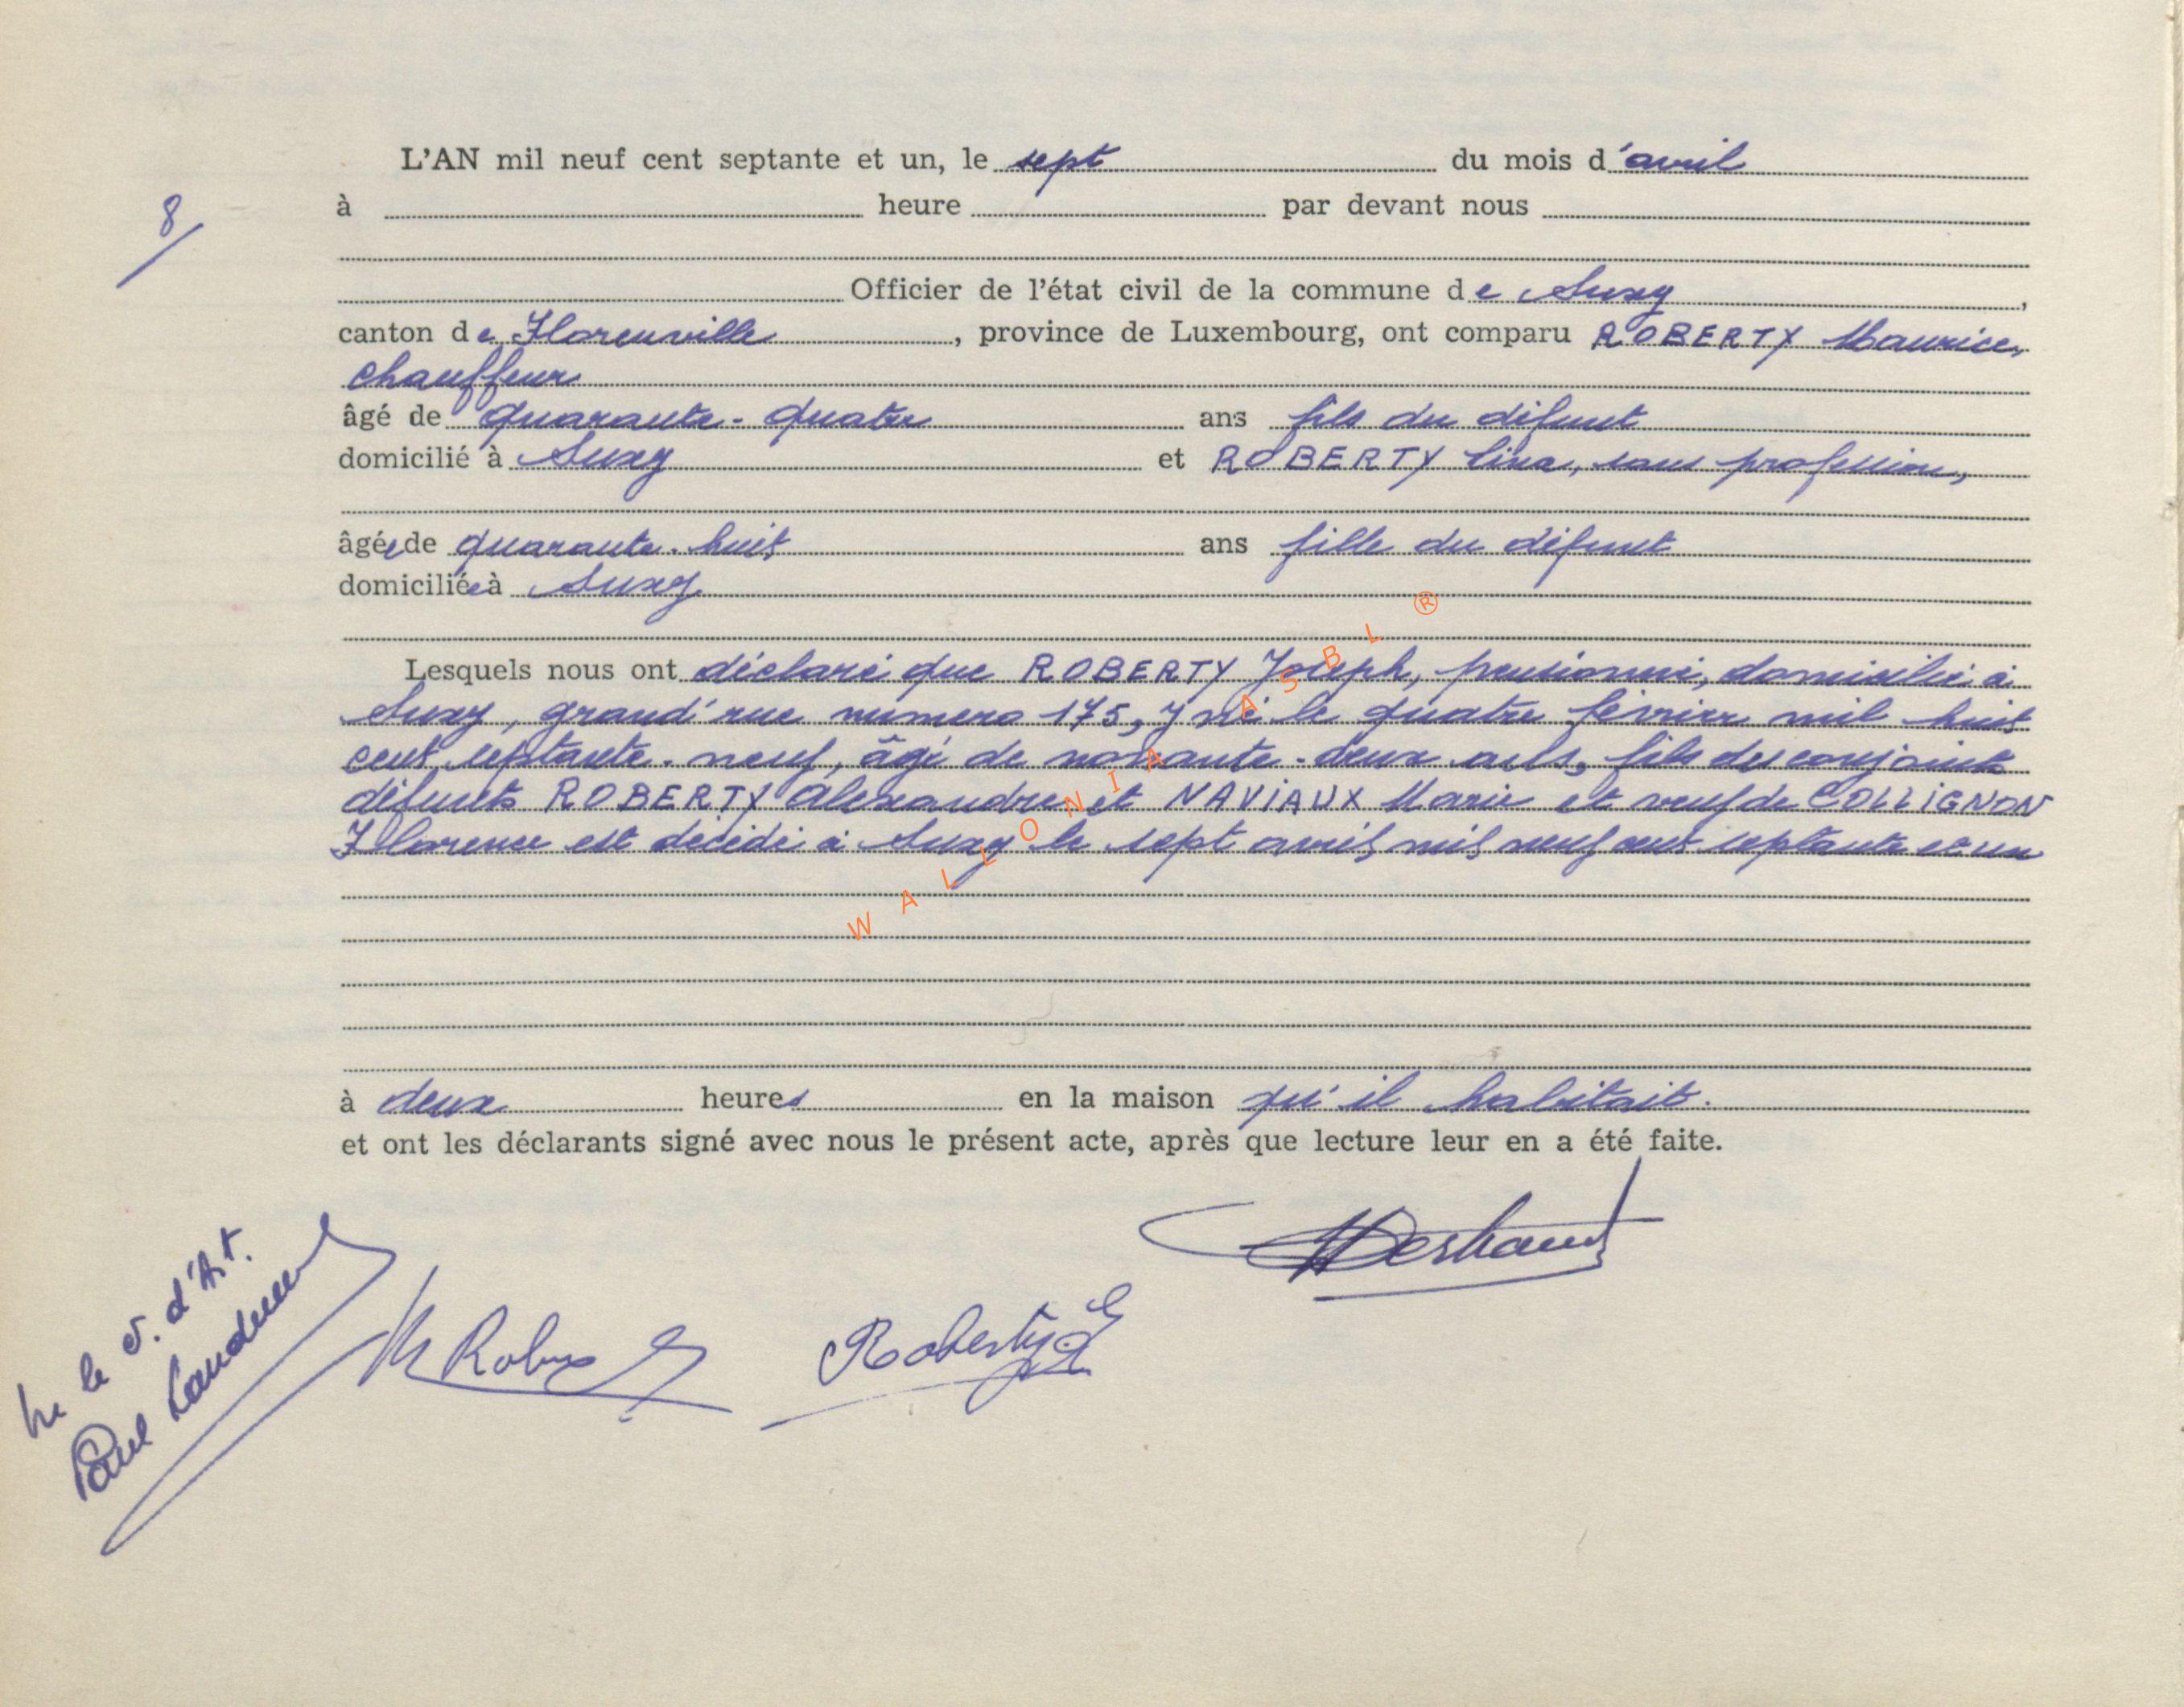 8
L'AN mil neuf cent septante et un, le sept du mois d'avril
à heure par devant nous
Officier de l'état civil de la commune de Suxy,
canton de Florenville, province de Luxembourg, ont comparu ROBERTY Maurice,
chauffeur
âgé de quarante-quatre ans fils du défunt
domicilié à Suxy et ROBERTY Lina, sans profession,
âgée de quarante-huit ans fille du défunt
domiciliée à Suxy
Lesquels nous ont déclaré que ROBERTY Joseph, pensionné, domicilié à
Suxy, grand'rue numéro 175, y né le quatre février mil huit
cent septante-neuf, âgé de nonante-deux ans, fils des conjoints
défunts ROBERTY Alexandre et NAVIAUX Marie et veuf de COLLIGNON
Florence est décédé à Suxy le sept avril mil neuf cent septante et un
à deux heures en la maison qu'il habitait.
et ont les déclarants signé avec nous le présent acte, après que lecture leur en a été faite.
Roberty L
WALLONIA ASBL ®